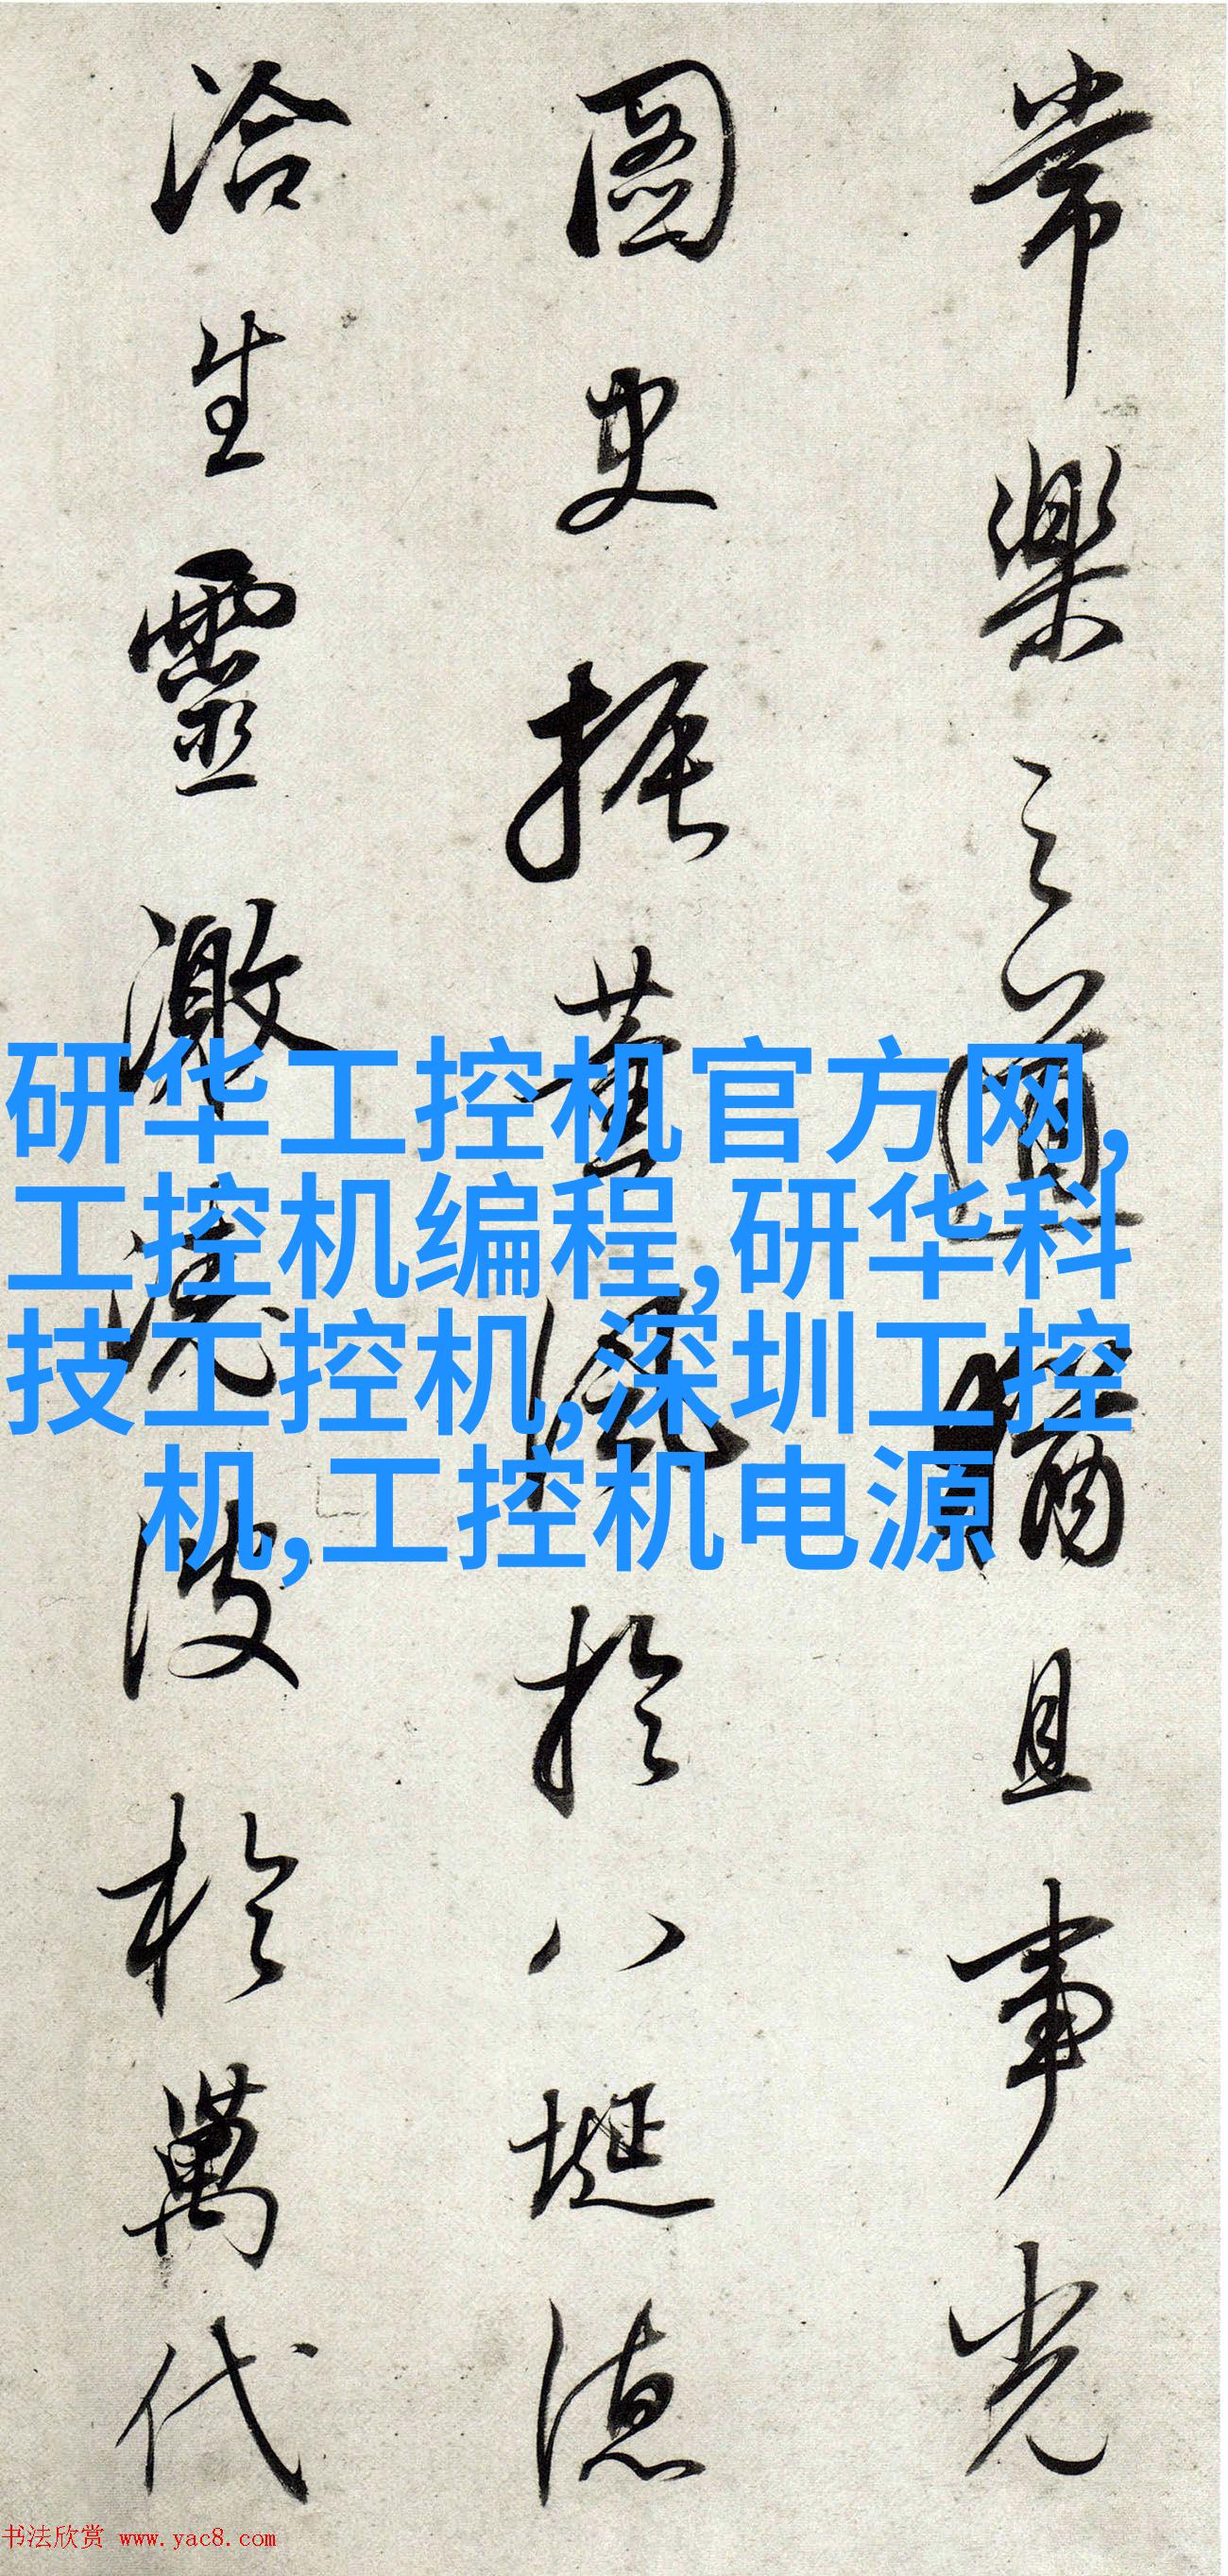 常樂之道備且事光
圖史振薰風於八埏德
洽生靈激澆波於萬代
研华工控机官方网,
工控机编程,研华科
技工控机,深圳工控
机,工控机电源
书法欣赏 www.yac8.com